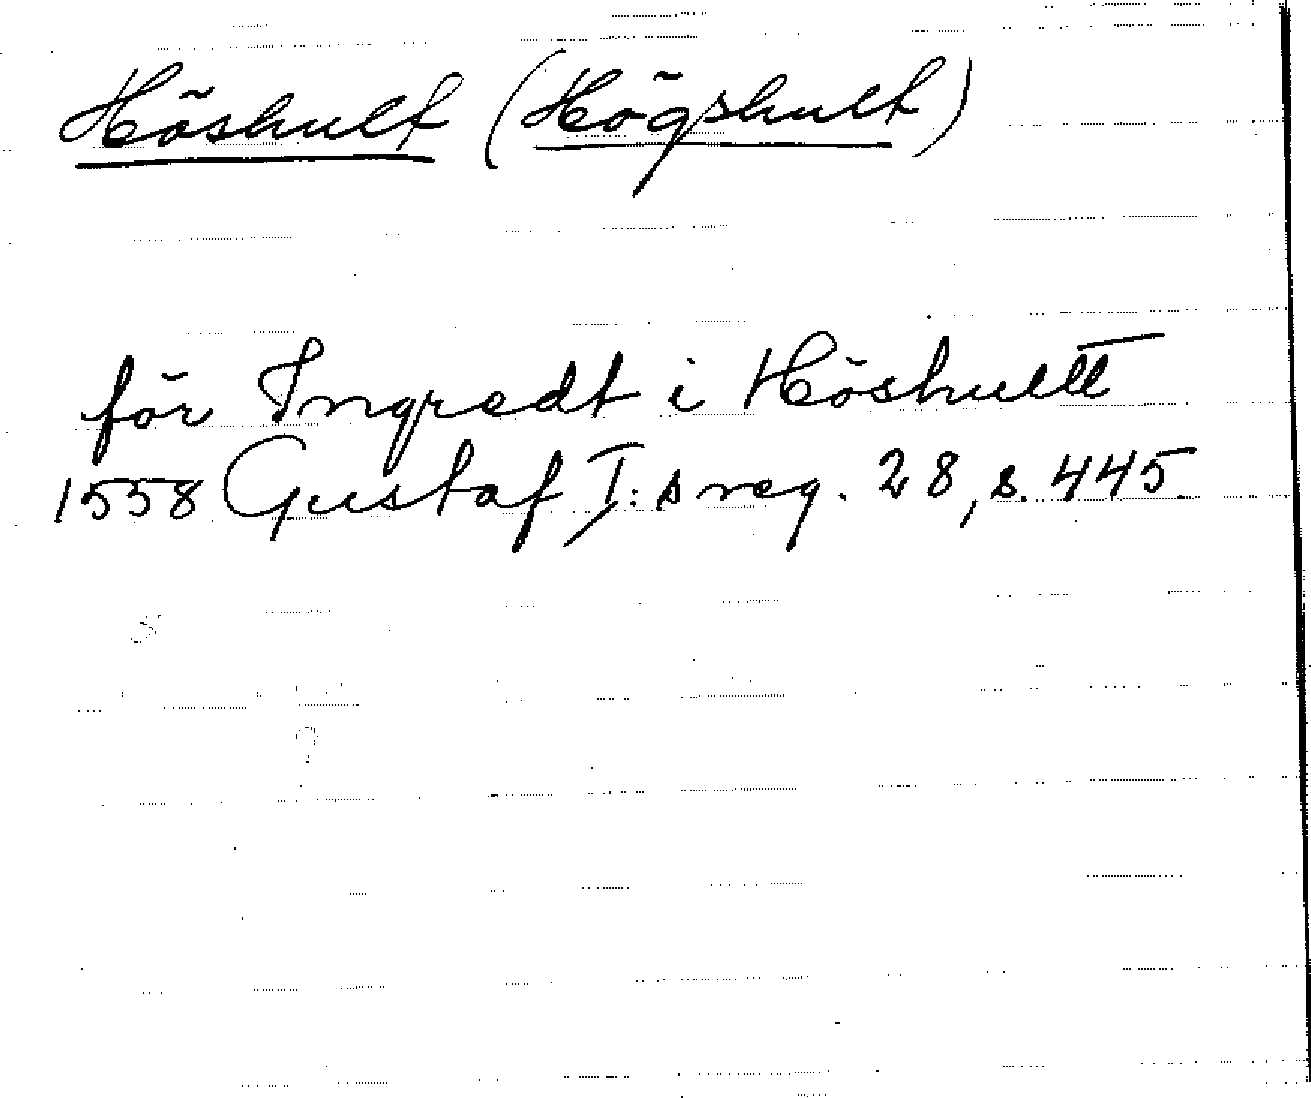 Höshult (Högshult)
för Ingredt i Höshultt
1558 Gustaf I:s reg. 28, s. 445